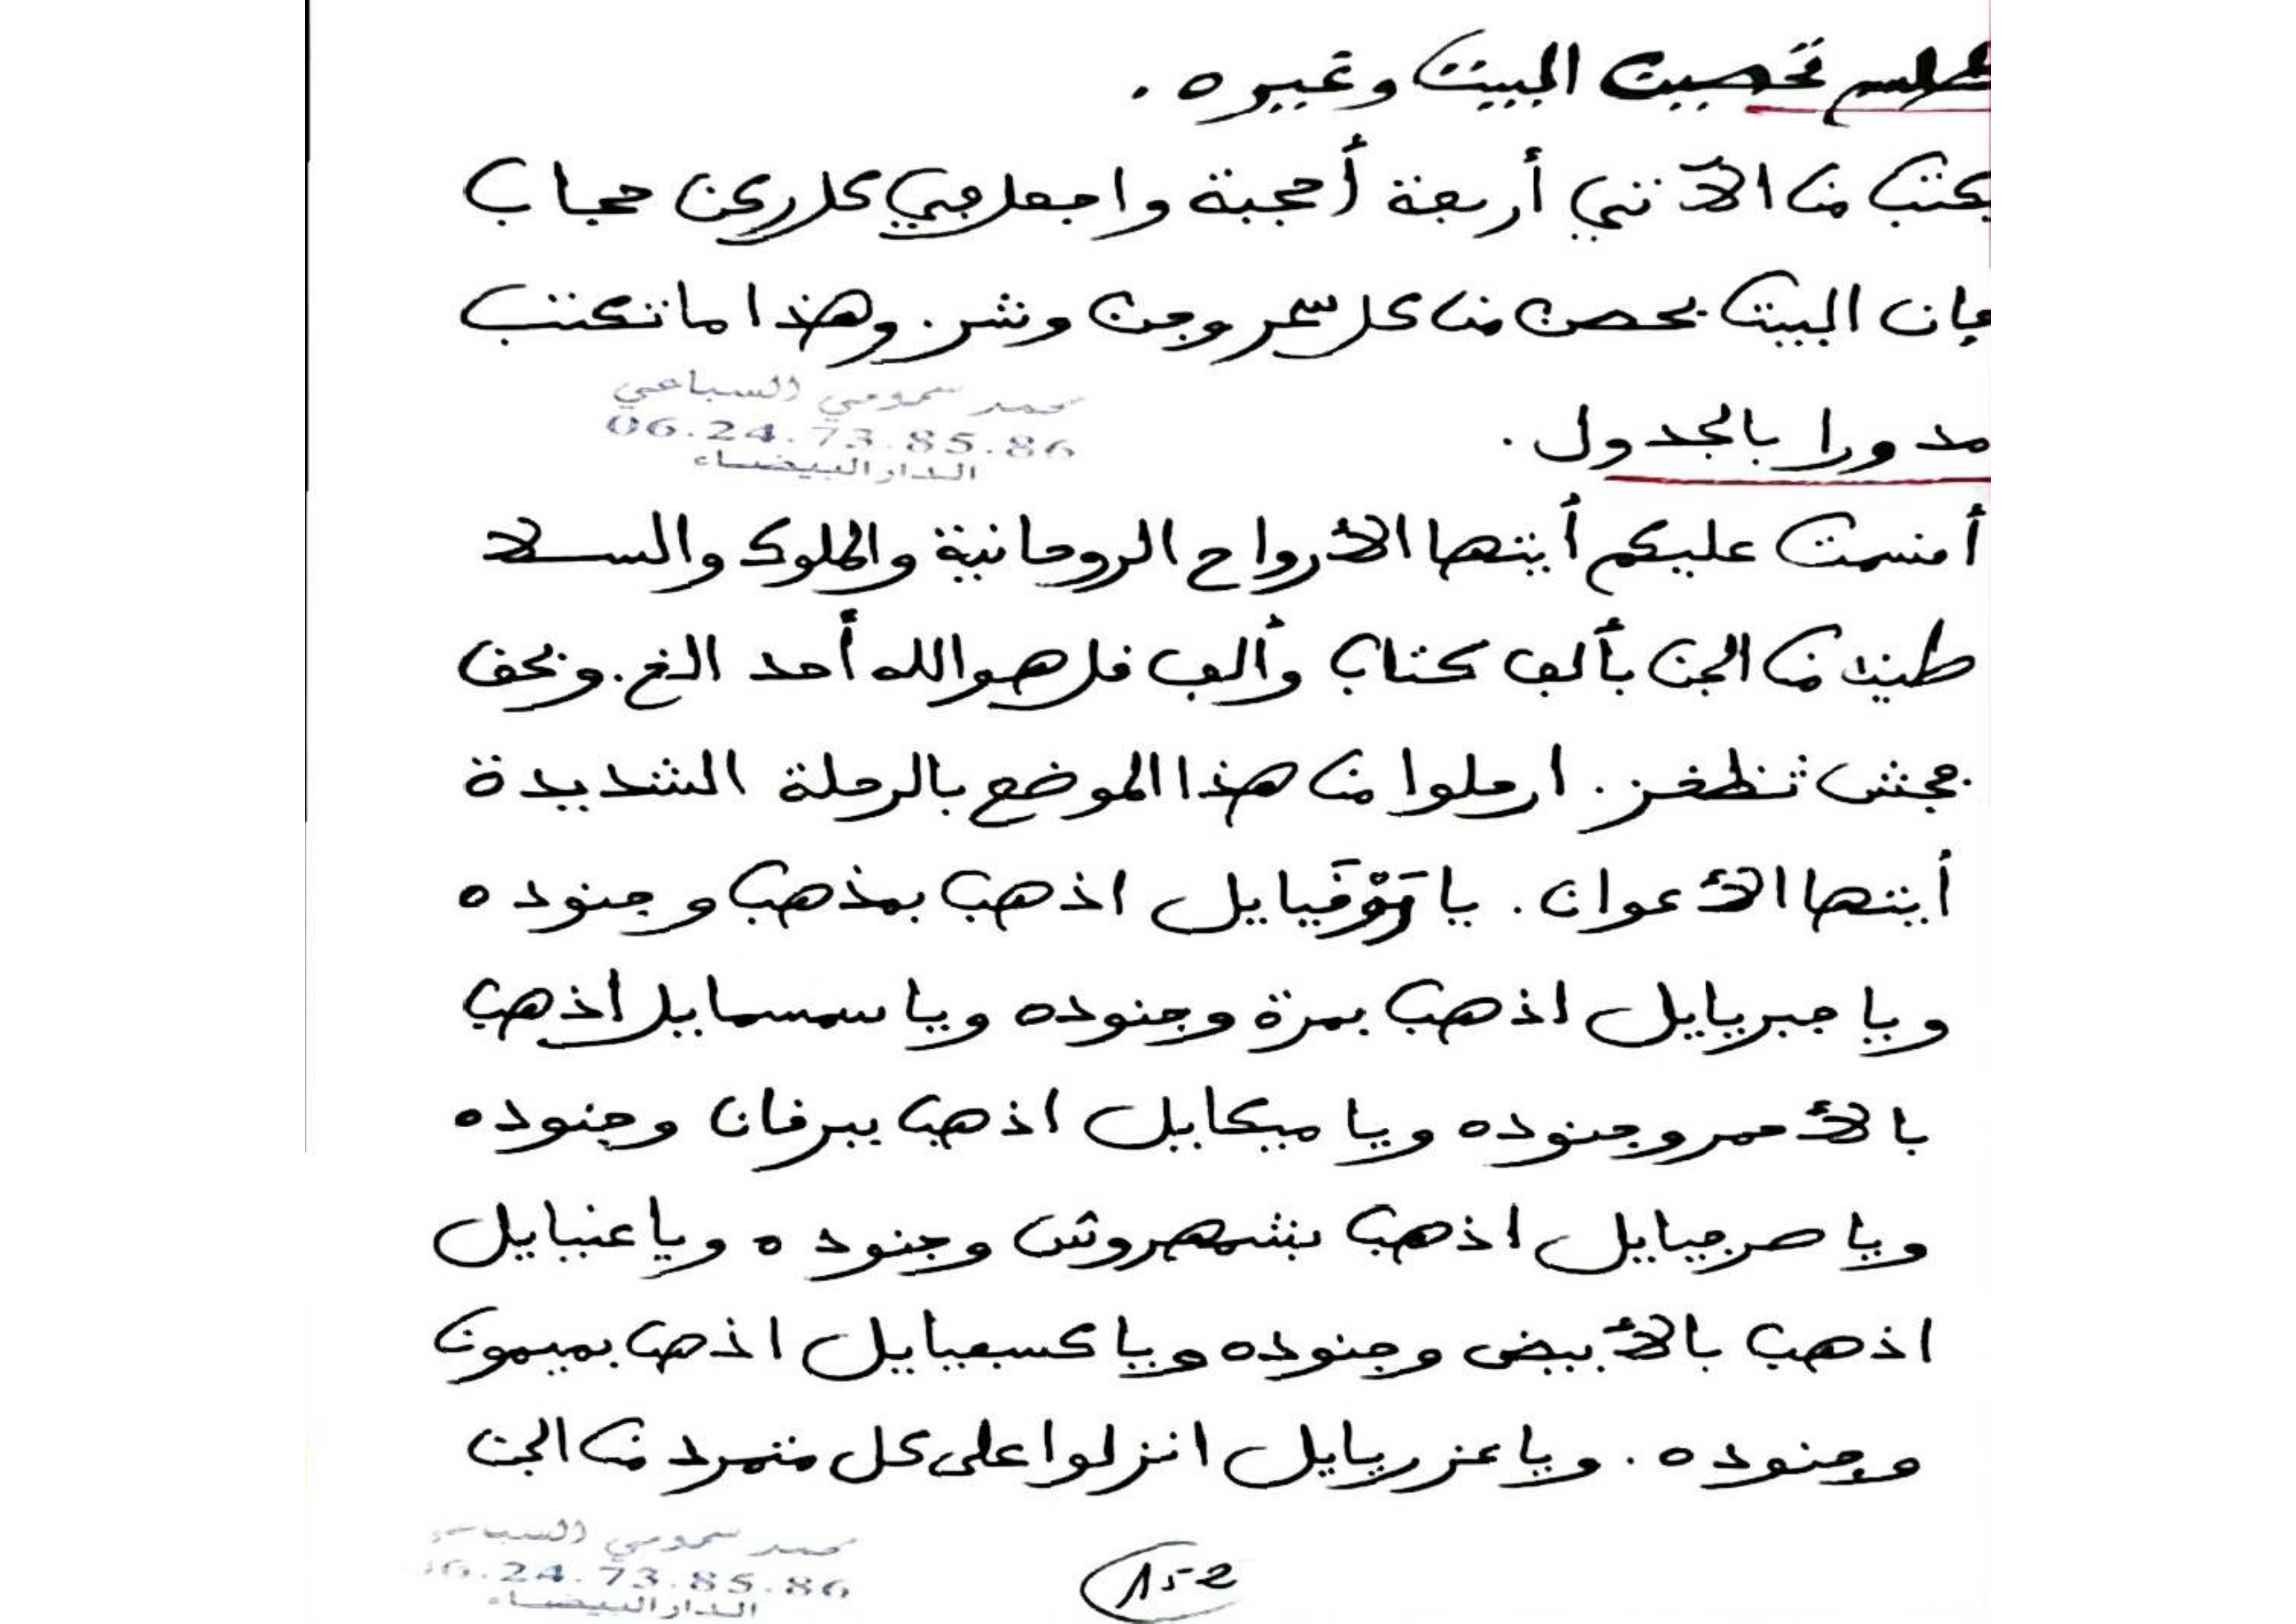 طلسم تحصين البيت وغيره .
يكتب من الآتي أربعة أحجبة واجعل في كل ركن حجاب
فإن البيت يحصن من كل سحر وجن وشر. وهذا ما تكتب
محمد سمومي السباعي
06.24.73.85.86
الدار البيضاء
مدورا بالجدول .
أقسمت عليكم أيتها الأرواح الروحانية والملوك والسلا
طين من الجن بألف كتاب وألف قل هو الله أحد الخ. وبحق
فجش ثظخز. ارحلوا من هذا الموضع بالرحلة الشديدة
أيتها الأعوان. يا روقيايل اذهب بمذهب وجنوده
ويا جبريايل اذهب بمرة وجنوده ويا سمسمايل اذهب
بالأحمر وجنوده ويا ميكايل اذهب ببرقان وجنوده
ويا صرفيايل اذهب بشمهروش وجنوده ويا عنيايل
اذهب بالأبيض وجنوده ويا كسفيايل اذهب بميمون
وجنوده . ويا عزريايل انزلوا على كل متمرد من الجن
محمد سمومي السباعي
06.24.73.85.86
الدار البيضاء
152